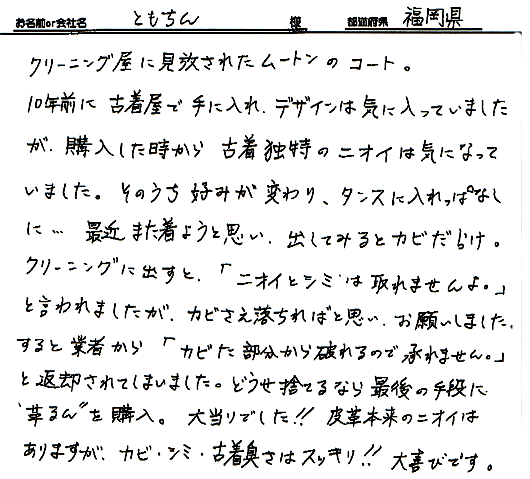 お名前or会社名 ともちん 様 都道府県 福岡県
クリーニング屋に見放されたムートンのコート。
10年前に古着屋で手に入れ、デザインは気に入っていました
が、購入した時から古着独特のニオイは気になって
いました。そのうち好みが変わり、タンスに入れっぱなし
に… 最近また着ようと思い、出してみるとカビだらけ。
クリーニングに出すと、「ニオイとシミは取れませんよ。」
と言われましたが、カビさえ落ちればと思い、お願いしました。
すると業者から「カビた部分から破れるので承れません。」
と返却されてしまいました。どうせ捨てるなら最後の手段に
"革るん"を購入。 大当りでした!! 皮革本来のニオイは
ありますが、カビ・シミ・古着臭さはスッキリ!! 大喜びです。